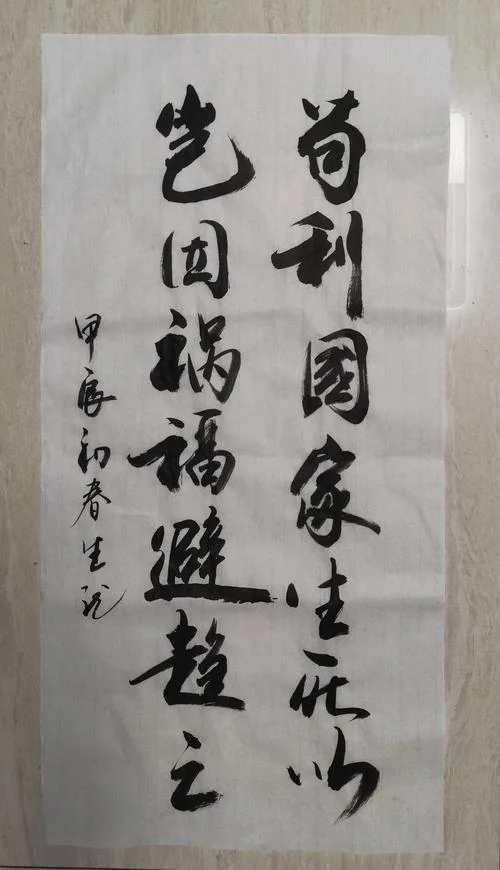 苟利國家生死以
岂因祸福避趋之
甲辰初春生